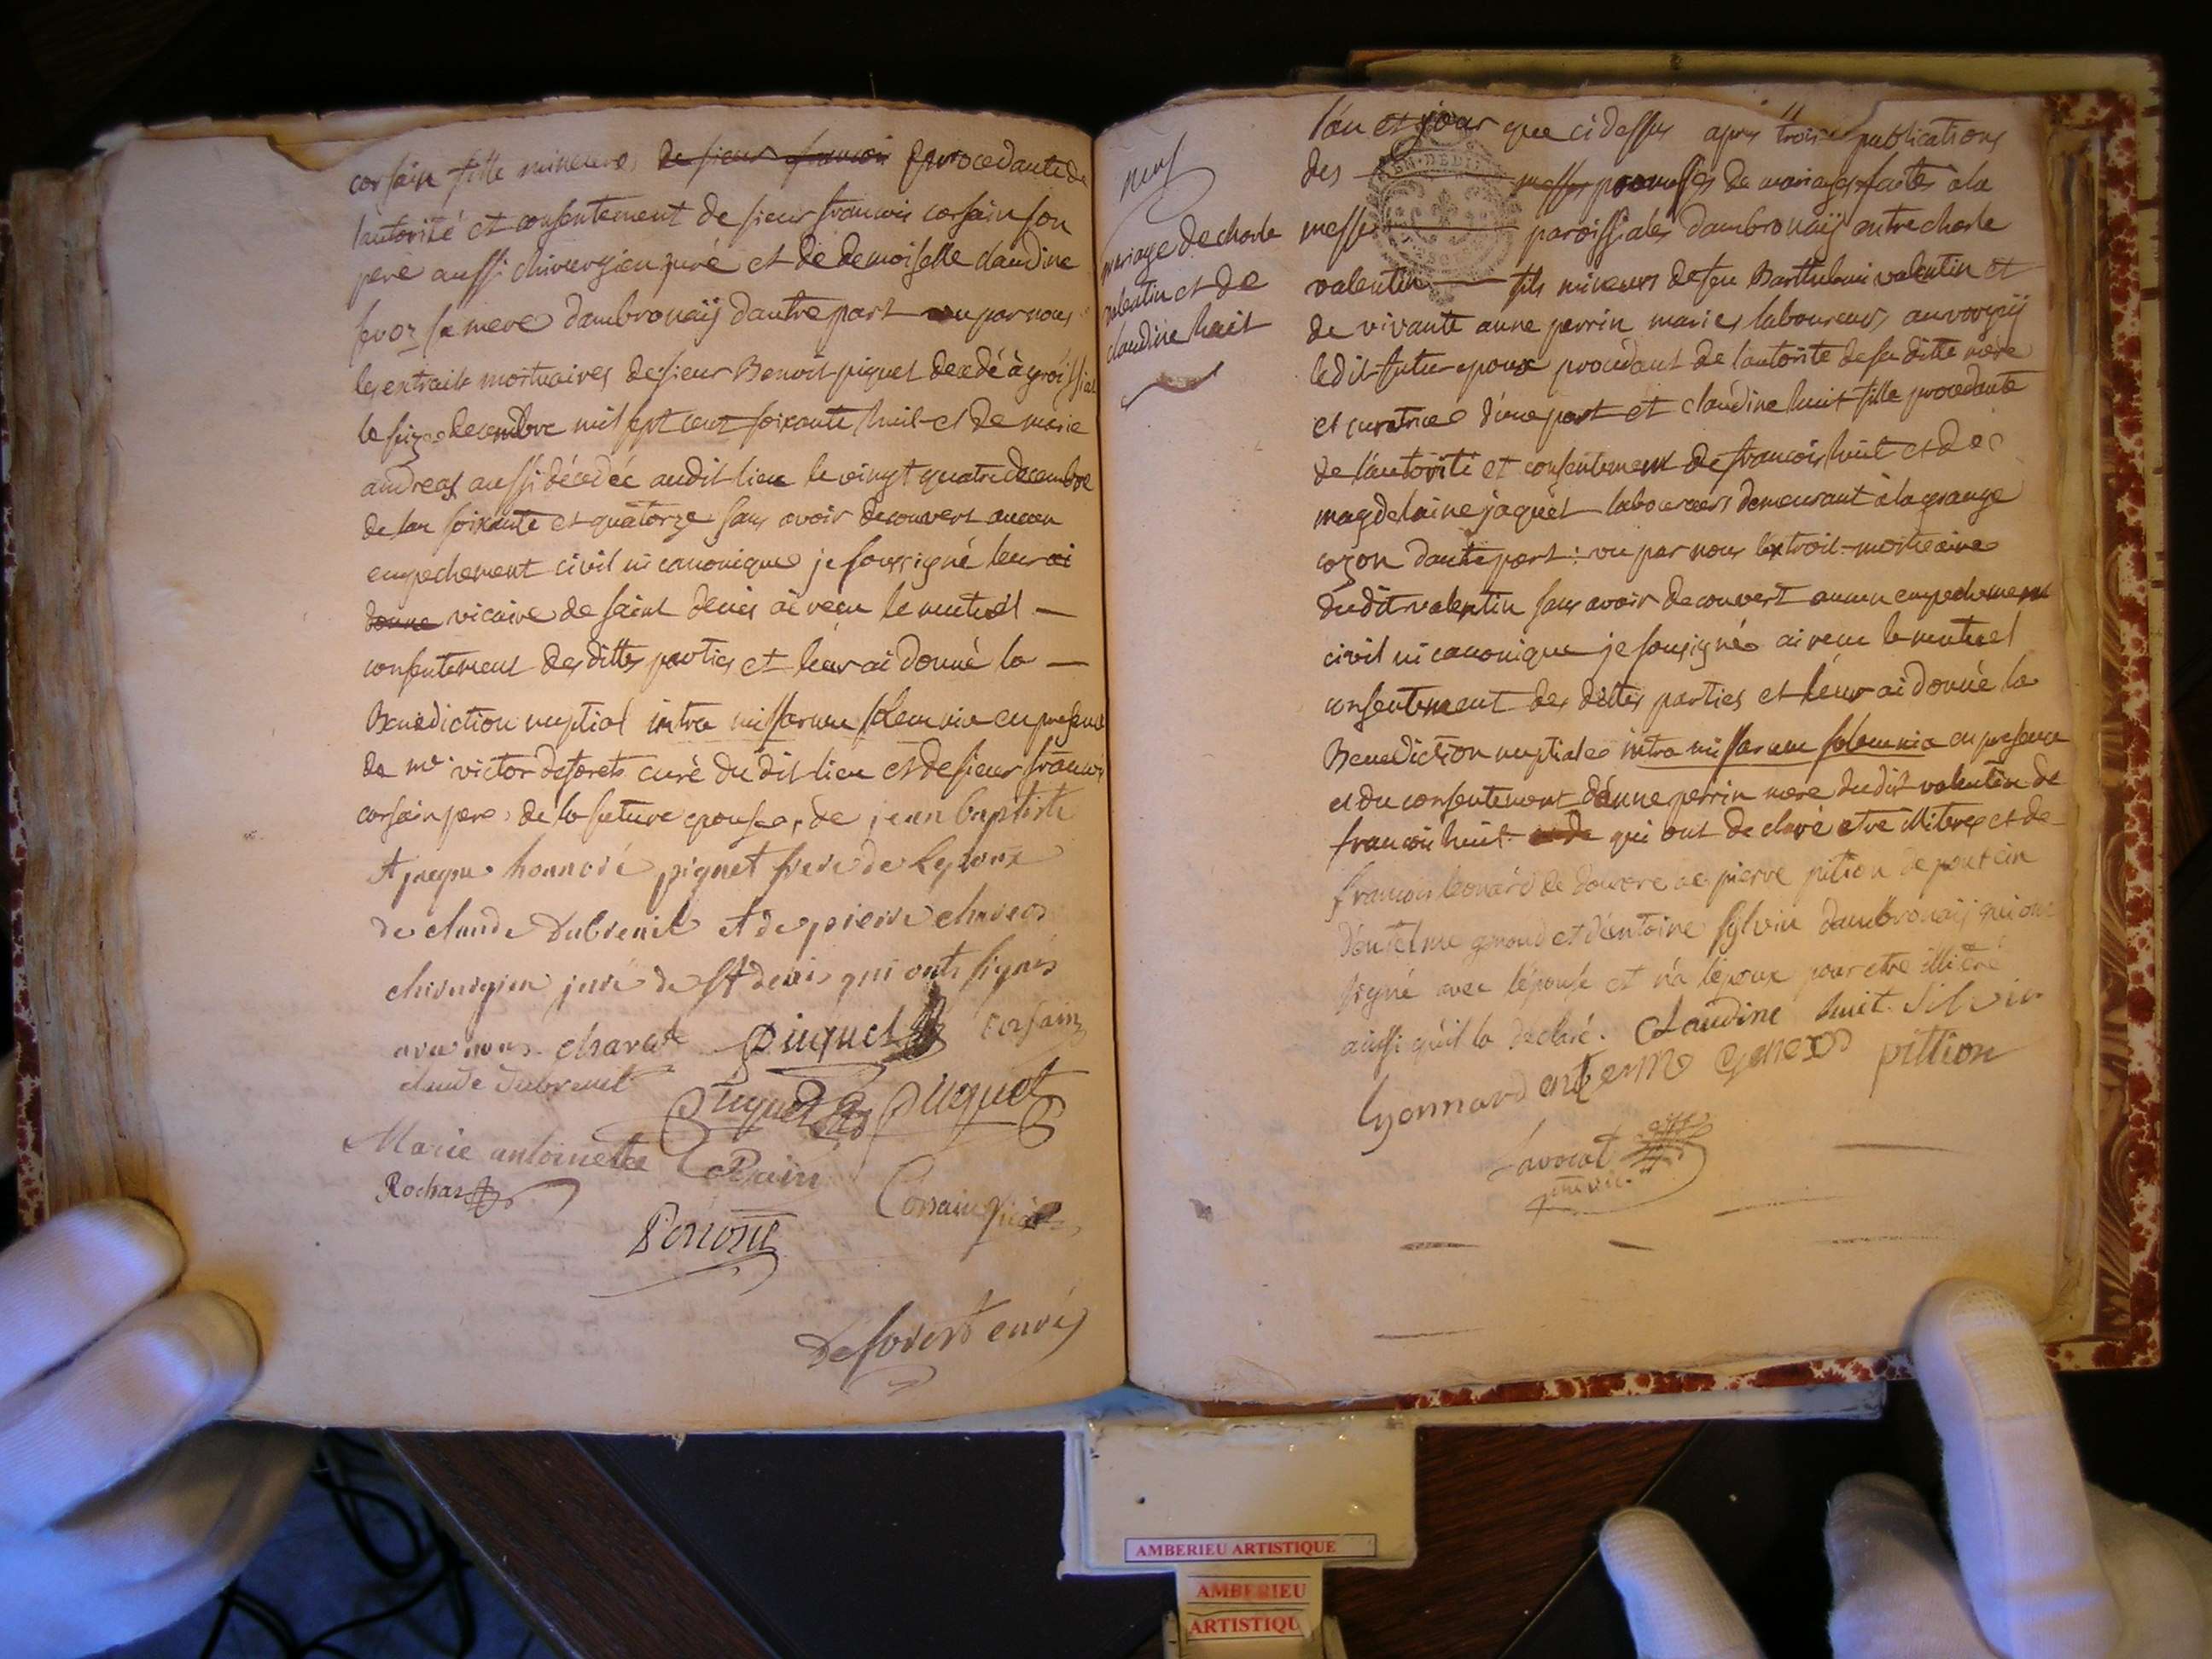 corsain fille mineure de sieur francois procedante de
lautorité et consentement de sieur francois corsain son
pere aussi chirurgien juré et de demoiselle claudine
sevoz sa mere dambronaÿ dautre part vu par nous
les extraits mortuaires de sieur Benoit piquet decedé à groissiat
le seize decembre mil sept cent soixante huit et de marie
andreas aussi décedée audit lieu le vingt quatre decembre
de lan soixante et quatorze sans avoir decouvert aucun
empechement civil ni canonique je soussigné leur ai
donne vicaire de saint denis ai recu le mutuel
consentement des dittes parties et leur ai donné la
Benediction nuptial intra missarum solemnia en presence
de mr victor deforets curé du dit lieu et de sieur francois
corsain pere de la future epouse, de jean baptiste
et jacque honnoré piquet frere de lepoux
de claude dubreuil et de pierre charvet
chirurgien juré de St denis qui onts signés
avec nous. charvet piquet corsain
claude dubreuil
piquet piquet
Marie antoinette
Rochas
Corsain
Deforest curé
neuf
mariage de charle
valentin et de
claudine huit
l'an et jour que ci dessus apres trois publications
des messes promesses de mariages faites a la
messe paroissiales dambronaÿ entre charle
valentin fils mineurs de feu Barthelemi valentin et
de vivante anne perrin mariés laboureurs au vorgeÿ
ledit futur epoux procedant de lautorité de sa ditte mere
et curatrice d'une part et claudine huit fille procedante
de l'autorité et consentement de francois huit et de
magdelaine jaquet laboureurs demeurant à la grange
cozon dautre part : vu par nous lextrait mortuaire
dudit valentin sans avoir decouvert aucun empechement
civil ni canonique je sousigné ai recu le mutuel
consentement des dittes parties et leur ai donné la
Benediction nuptiale intra missarum solemnia en presence
et du consentement d'anne perrin mere dudit valentin de
francois huit qui ont declaré etre illitérés et de
francois leonard de douvre de pierre pition de pont ein
d'antelme genoud et d'antoine sylvin dambronaÿ qui ont
signé avec l'epouse et n'a l'epoux pour etre illiteré
ainsi qu'il la declaré. Claudine huit Silvin
lyonnard anterme genoud pittion
Lavocat
AMBERIEU ARTISTIQUE
AMBERIEU
ARTISTIQU